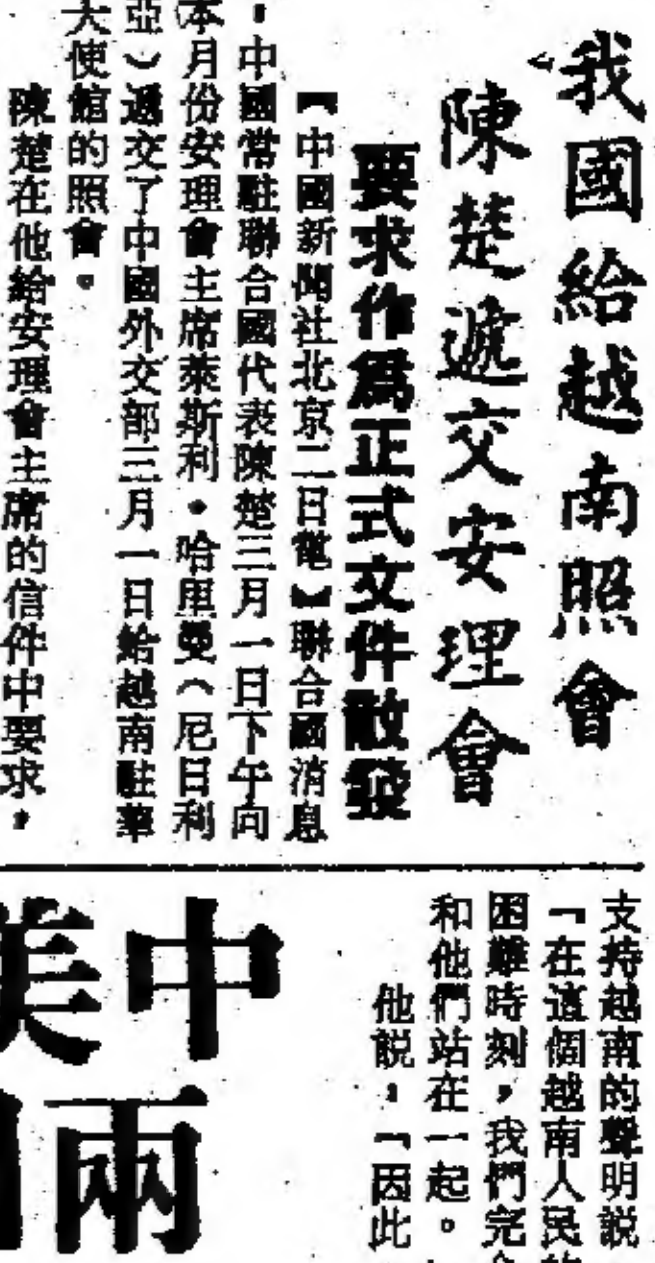 我國給越南照會
陳楚遞交安理會
要求作爲正式文件散發
【中國新聞社北京二日電】聯合國消息
：中國常駐聯合國代表陳楚三月一日下午向
本月份安理會主席萊斯利・哈里曼（尼日利
亞）遞交了中國外交部三月一日給越南駐華
大使館的照會。
陳楚在他給安理會主席的信件中要求，
支持越南的聲明説
「在這個越南人民
困難時刻，我們完
和他們站在一起。
他説：「因此
中
美
兩